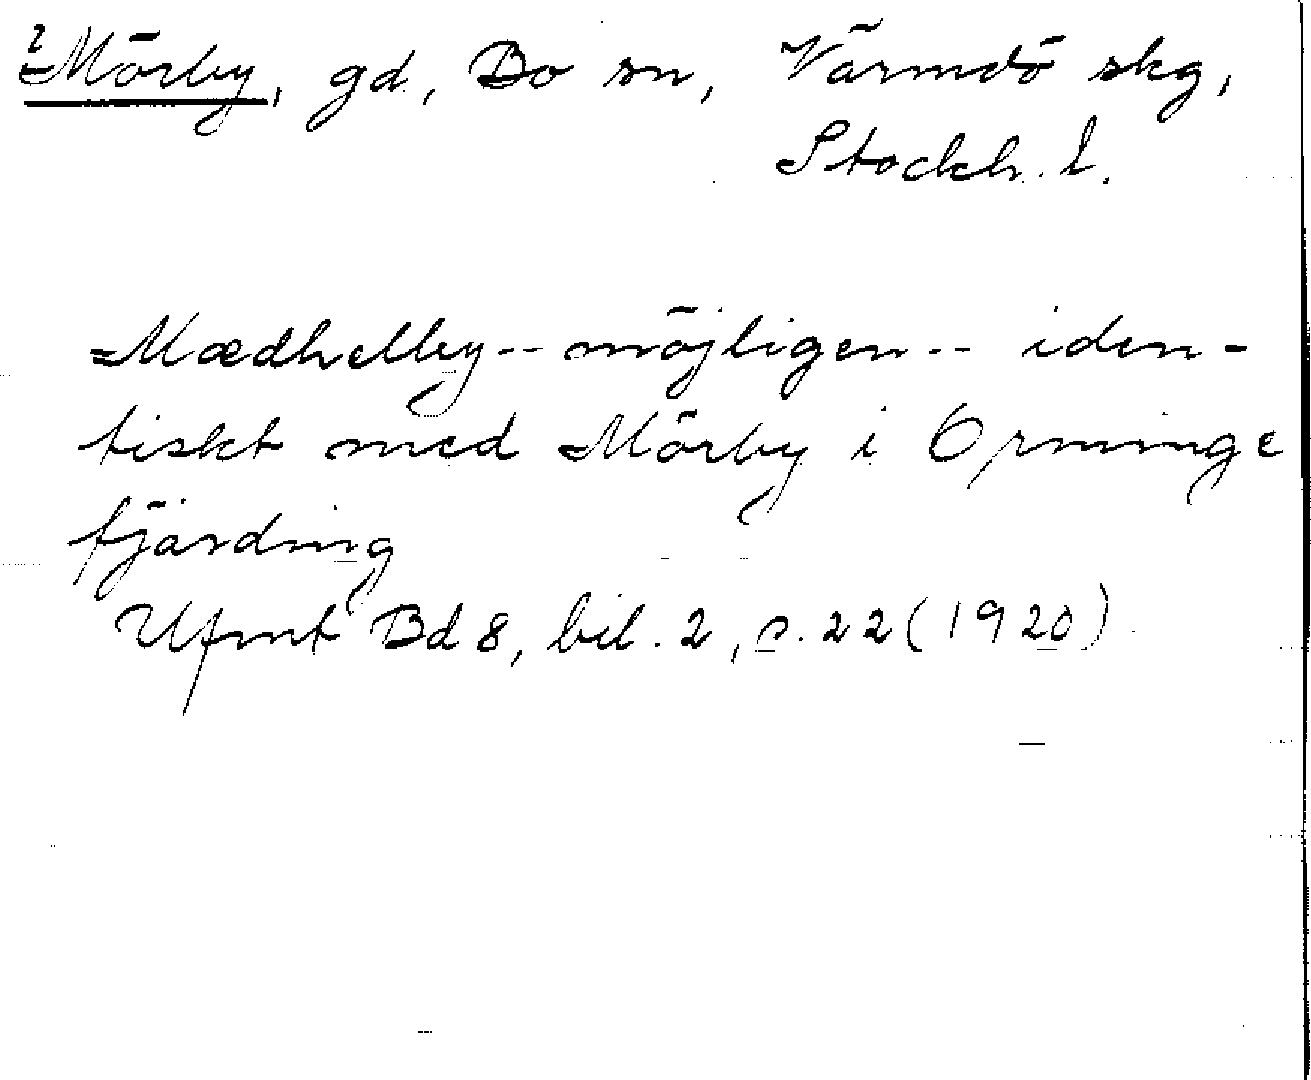 ? Mörby, gd, Bo sn, Värmdö skg,
Stockh. l.
Mædhelby -- möjligen -- iden-
tiskt med Mörby i Orminge
fjärding
Ufmt Bd 8, bil. 2, s. 22 (1920)